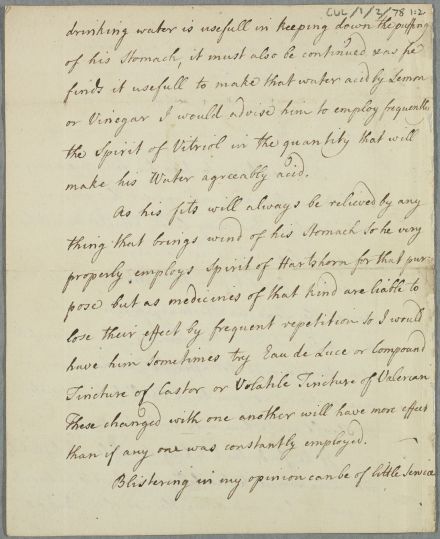 CUL/1/2/78 1:2
drinking water is usefull in keeping down the puffing
of his Stomach, it must also be continued & as he
finds it usefull to make that water acid by Lemon
or Vinegar I would advise him to employ frequently
the Spirit of Vitriol in the quantity that will
make his Water agreeably acid.
As his fits will always be relieved by any
thing that brings wind of his Stomach So he very
properly employs Spirit of Hartshorn for that pur=
pose but as medicines of that kind are liable to
lose their effect by frequent repetition so I would
have him sometimes try Eau de Luce or Compound
Tincture of Castor or Volatile Tincture of Valerian
These changed with one another will have more effect
than if any one was constantly employed.
Blistering in my opinion can be of little Service